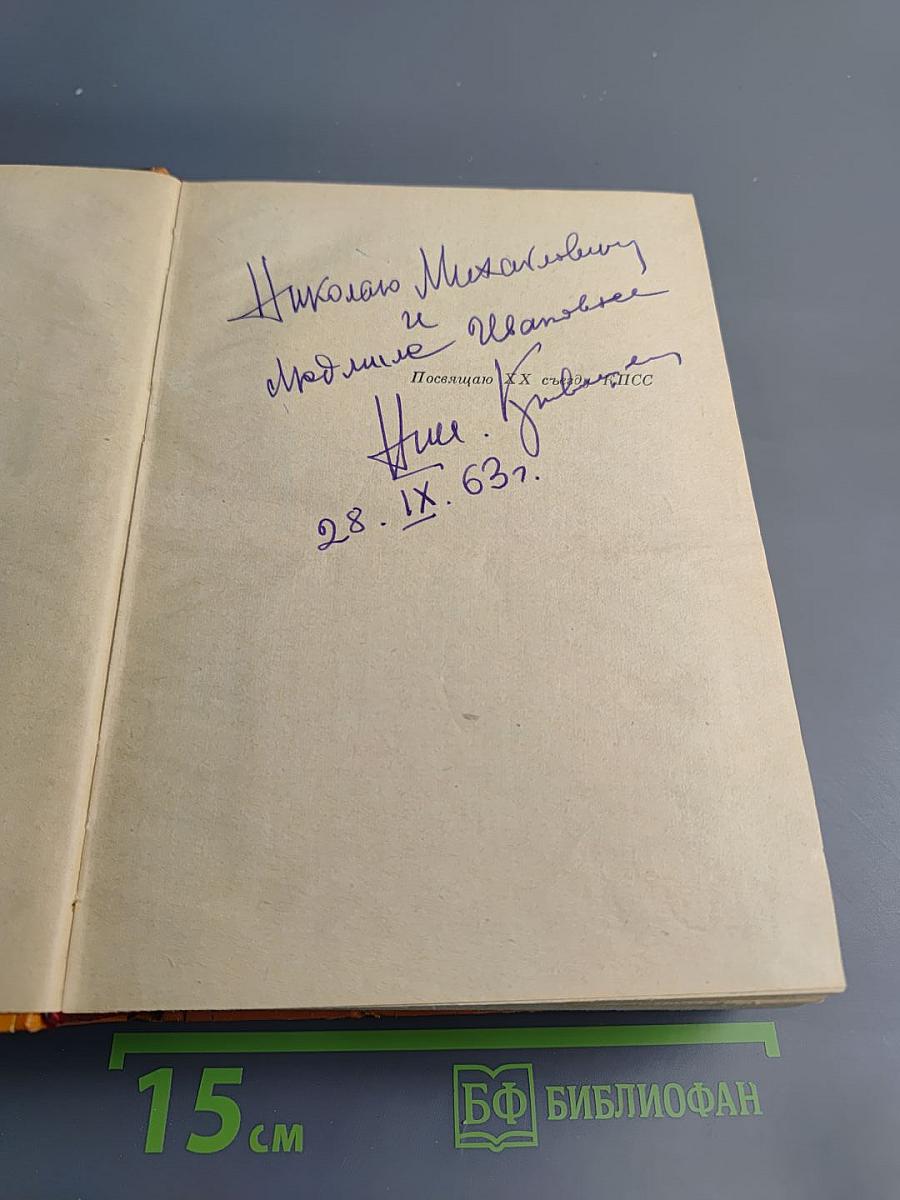 Николаю Михайловичу
и
Людмиле Ивановне
Посвящаю XX съезду КПСС
Ник.
28. IX. 63 г.
15 см
БФ БИБЛИОФАН